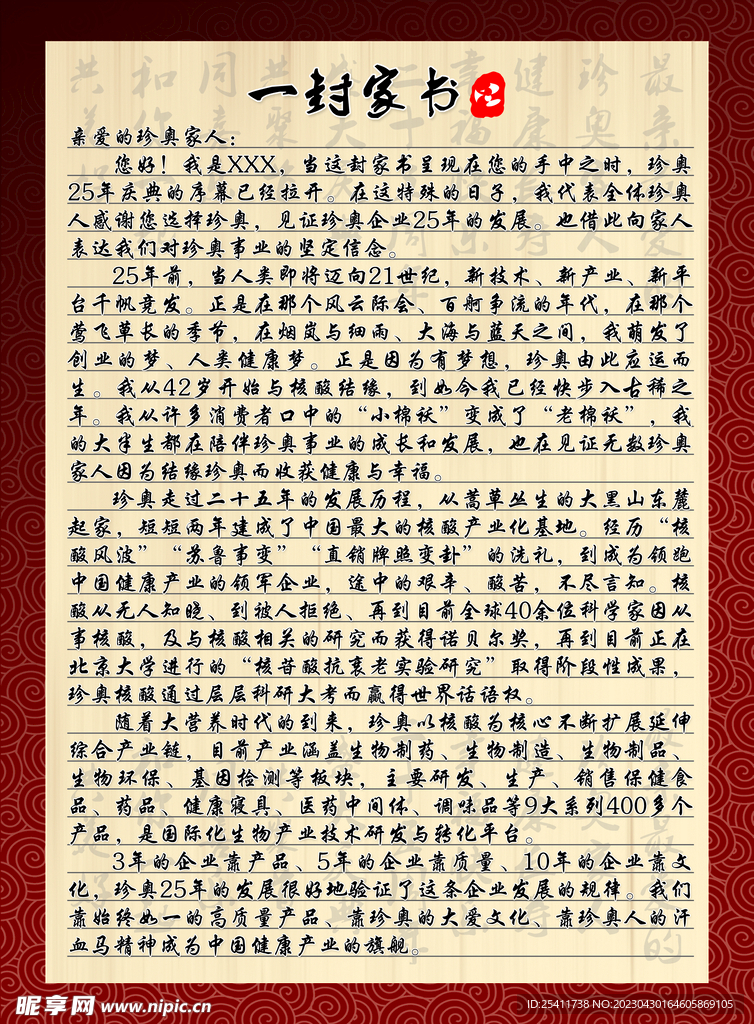 一封家书
亲爱的珍奥家人：
您好！我是XXX，当这封家书呈现在您的手中之时，珍奥
25年庆典的序幕已经拉开。在这特殊的日子，我代表全体珍奥
人感谢您选择珍奥，见证珍奥企业25年的发展。也借此向家人
表达我们对珍奥事业的坚定信念。
25年前，当人类即将迈向21世纪，新技术、新产业、新平
台千帆竞发。正是在那个风云际会、百舸争流的年代，在那个
莺飞草长的季节，在烟岚与细雨、大海与蓝天之间，我萌发了
创业的梦、人类健康梦。正是因为有梦想，珍奥由此应运而
生。我从42岁开始与核酸结缘，到如今我已经快步入古稀之
年。我从许多消费者口中的“小棉袄”变成了“老棉袄”，我
的大半生都在陪伴珍奥事业的成长和发展，也在见证无数珍奥
家人因为结缘珍奥而收获健康与幸福。
珍奥走过二十五年的发展历程，从蒿草丛生的大黑山东麓
起家，短短两年建成了中国最大的核酸产业化基地。经历“核
酸风波”“苏鲁事变”“直销牌照变卦”的洗礼，到成为领跑
中国健康产业的领军企业，途中的艰辛、酸苦，不尽言知。核
酸从无人知晓、到被人拒绝、再到目前全球40余位科学家因从
事核酸，及与核酸相关的研究而获得诺贝尔奖，再到目前正在
北京大学进行的“核苷酸抗衰老实验研究”取得阶段性成果，
珍奥核酸通过层层科研大考而赢得世界话语权。
随着大营养时代的到来，珍奥以核酸为核心不断扩展延伸
综合产业链，目前产业涵盖生物制药、生物制造、生物制品、
生物环保、基因检测等板块，主要研发、生产、销售保健食
品、药品、健康寝具、医药中间体、调味品等9大系列400多个
产品，是国际化生物产业技术研发与转化平台。
3年的企业靠产品、5年的企业靠质量、10年的企业靠文
化，珍奥25年的发展很好地验证了这条企业发展的规律。我们
靠始终如一的高质量产品、靠珍奥的大爱文化、靠珍奥人的汗
血马精神成为中国健康产业的旗舰。
昵享网 www.nipic.cn
ID:25411738 NO:20230430164605869105